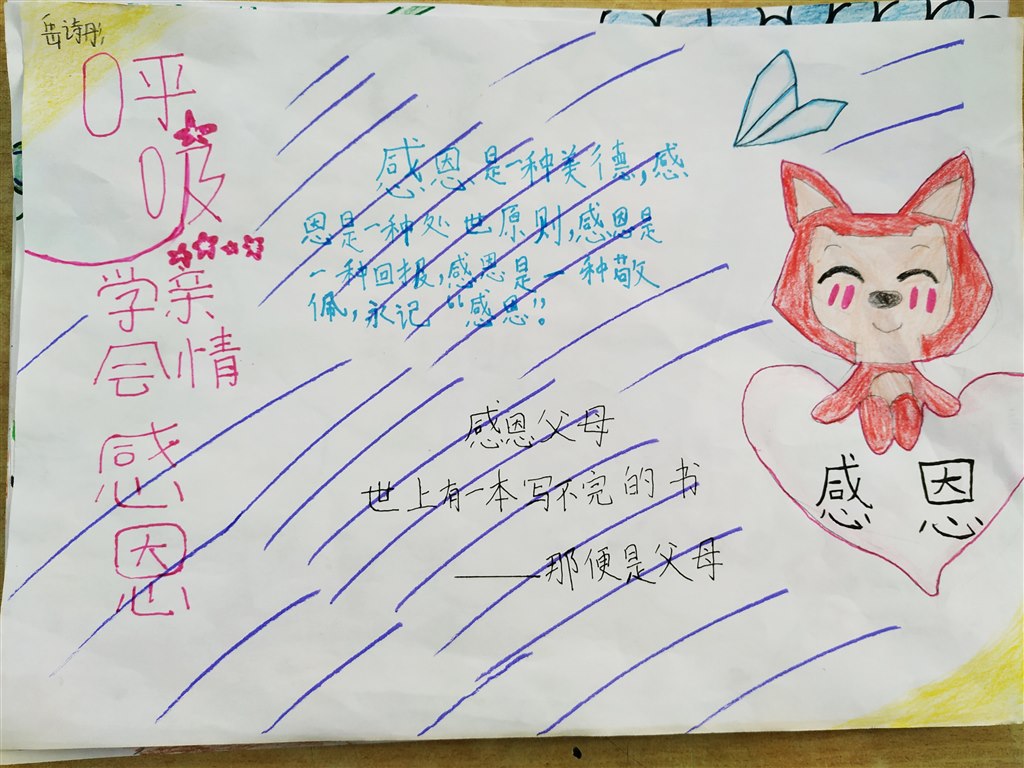 岳诗彤
呼
吸
亲情
学会
感恩
感恩是一种美德,感
恩是一种处世原则,感恩是
一种回报,感恩是一种敬
佩,永记“感恩”。
感恩父母
世上有一本写不完的书
——那便是父母
感恩